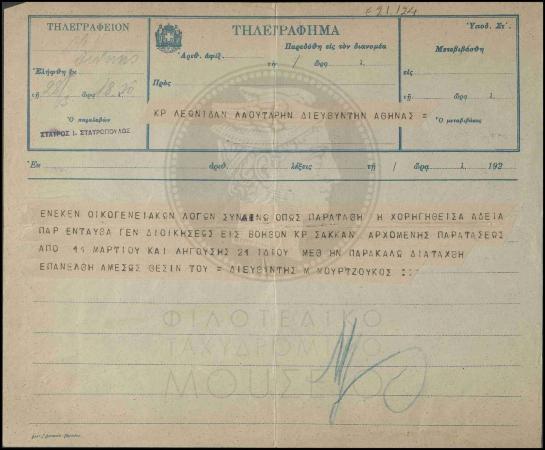 ΤΗΛΕΓΡΑΦΕΙΟΝ
Ἐλήφθη ἐκ
τῇ 28/3 ὥρα 18.30
Ὁ παραλαβὼν
ΣΤΑΥΡΟΣ Ι. ΣΤΑΥΡΟΠΟΥΛΟΣ
ΤΗΛΕΓΡΑΦΗΜΑ
Ἀριθ. ἀφίξ.
Παρεδόθη εἰς τὸν διανομέα
τῇ / ὥρᾳ 1.
Πρὸς
Ὑποδ. Στ΄.
Μετεβιβάσθη
εἰς
τῇ / ὥρᾳ 1.
Ὁ μεταβιβάσας
ΚΡ ΛΕΩΝΙΔΑΝ ΛΑΟΥΤΑΡΗΝ ΔΙΕΥΘΥΝΤΗΝ ΑΘΗΝΑΣ =
Ἐκ ἀριθ. λέξεις τῇ / ὥρᾳ 1. 192
ΕΝΕΚΕΝ ΟΙΚΟΓΕΝΕΙΑΚΩΝ ΛΟΓΩΝ ΣΥΝΑΙΝΩ ΟΠΩΣ ΠΑΡΑΤΑΘΗ Η ΧΟΡΗΓΗΘΕΙΣΑ ΑΔΕΙΑ
ΠΑΡ ΕΝΤΑΥΘΑ ΓΕΝ ΔΙΟΙΚΗΣΕΩΣ ΕΙΣ ΒΟΗΘΟΝ ΚΡ ΣΑΚΚΑΝ ΑΡΧΟΜΕΝΗΣ ΠΑΡΑΤΑΣΕΩΣ
ΑΠΟ 11 ΜΑΡΤΙΟΥ ΚΑΙ ΛΗΓΟΥΣΗΣ 21 ΙΔΙΟΥ ΜΕΘ ΗΝ ΠΑΡΑΚΑΛΩ ΔΙΑΤΑΧΘΗ
ΕΠΑΝΕΛΘΗ ΑΜΕΣΩΣ ΘΕΣΙΝ ΤΟΥ = ΔΙΕΥΘΥΝΤΗΣ Μ ΜΟΥΡΤΖΟΥΚΟΣ
ΦΙΛΟΤΕΛΙΚΟ
ΤΑΧΥΔΡΟΜΙΚΟ
ΜΟΥΣΕΙΟ